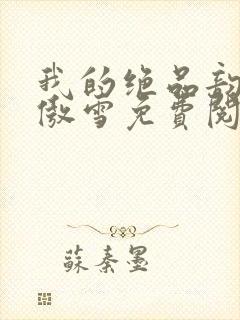 我的绝品
傲雪免費閱
蘇秦墨